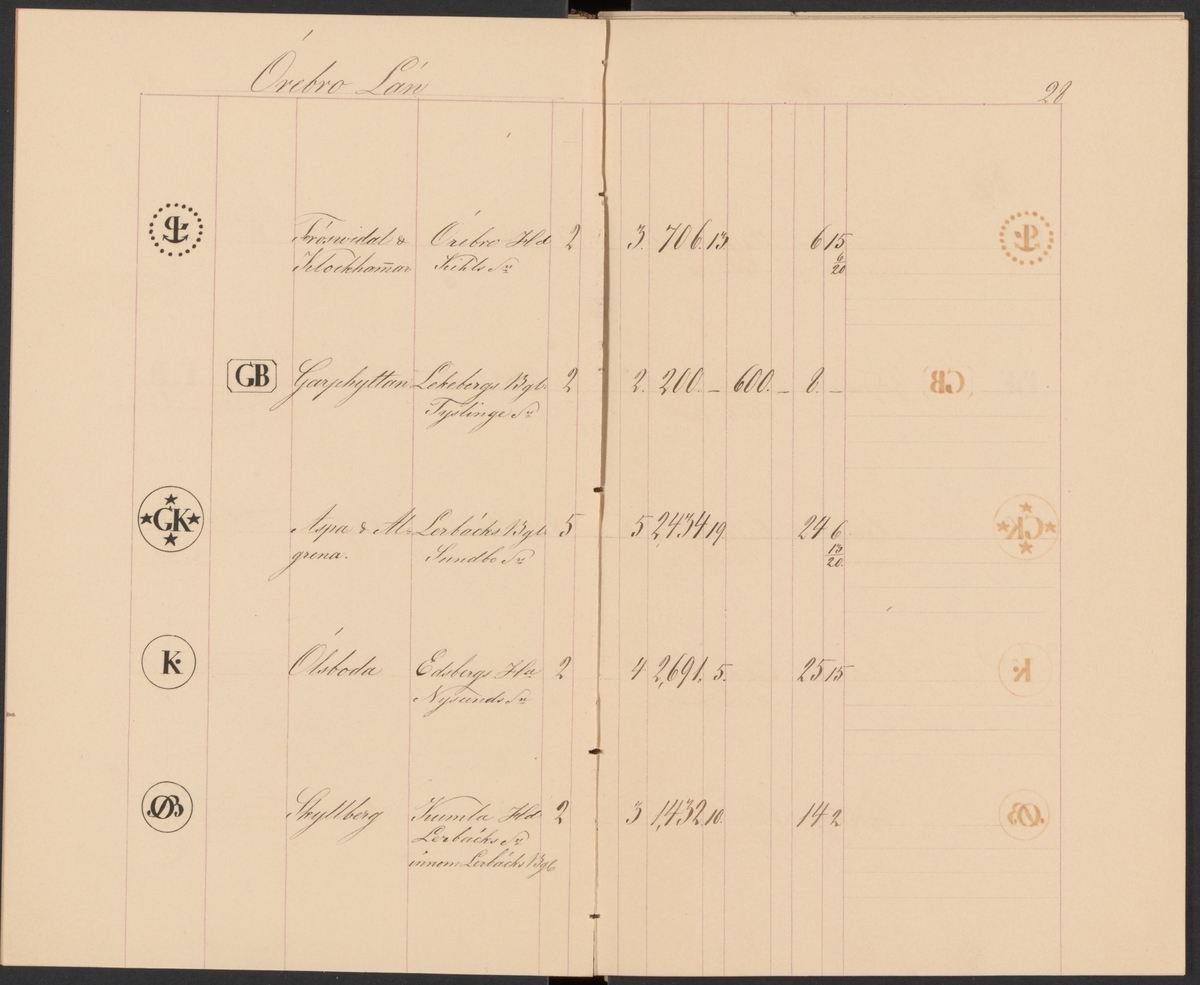 Örebro Län
28
Fröswidal & Örebro Hd 2 3. 706. 13. 6 15
Klockham̄ar Kihls Sn 6/20
GB Garphyttan Lekebergs Bgl. 2 2. 200. – 600. – 8. –
Tyslinge Sn
GK Aspa & Al- Lerbäcks Bgl 5 5 2,434 19 24 6
grena. Sundbo Sn 13/20
K Ölsboda Edsbergs Hd 2 4 2,691. 5. 25 15
Nysunds Sn
Skyllberg Kumla Hd 2 3 1,432. 10. 14 2
Lerbäcks Sn
innom Lerbäcks Bgl